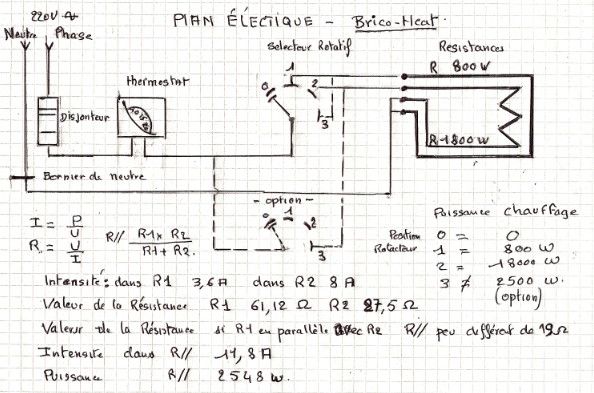 PLAN ÉLECTIQUE - Brico-Heat.
220V
Neutre Phase
Selecteur Rotatif
Resistances
R 800 W
thermostat
Disjonteur
0 1 2 3
R 1800 W
Bornier de neutre
- option -
0 1 2 3
Puissance chauffage
Position 0 = 0
Rotacteur 1 = 800 W
2 = 18000 W
3 ≠ 2500 W.
(option)
I = P/U
R = U/I
R// R1 x R2 / R1 + R2.
Intensité: dans R1 3,6 A dans R2 8 A
Valeur de la Résistance R1 61,12 Ω R2 27,5 Ω
Valeur de la Résistance si R1 en parallèle avec R2 R// peu différent de 19 Ω
Intensite dans R// 11,8 A
Puissance R// 2548 W.